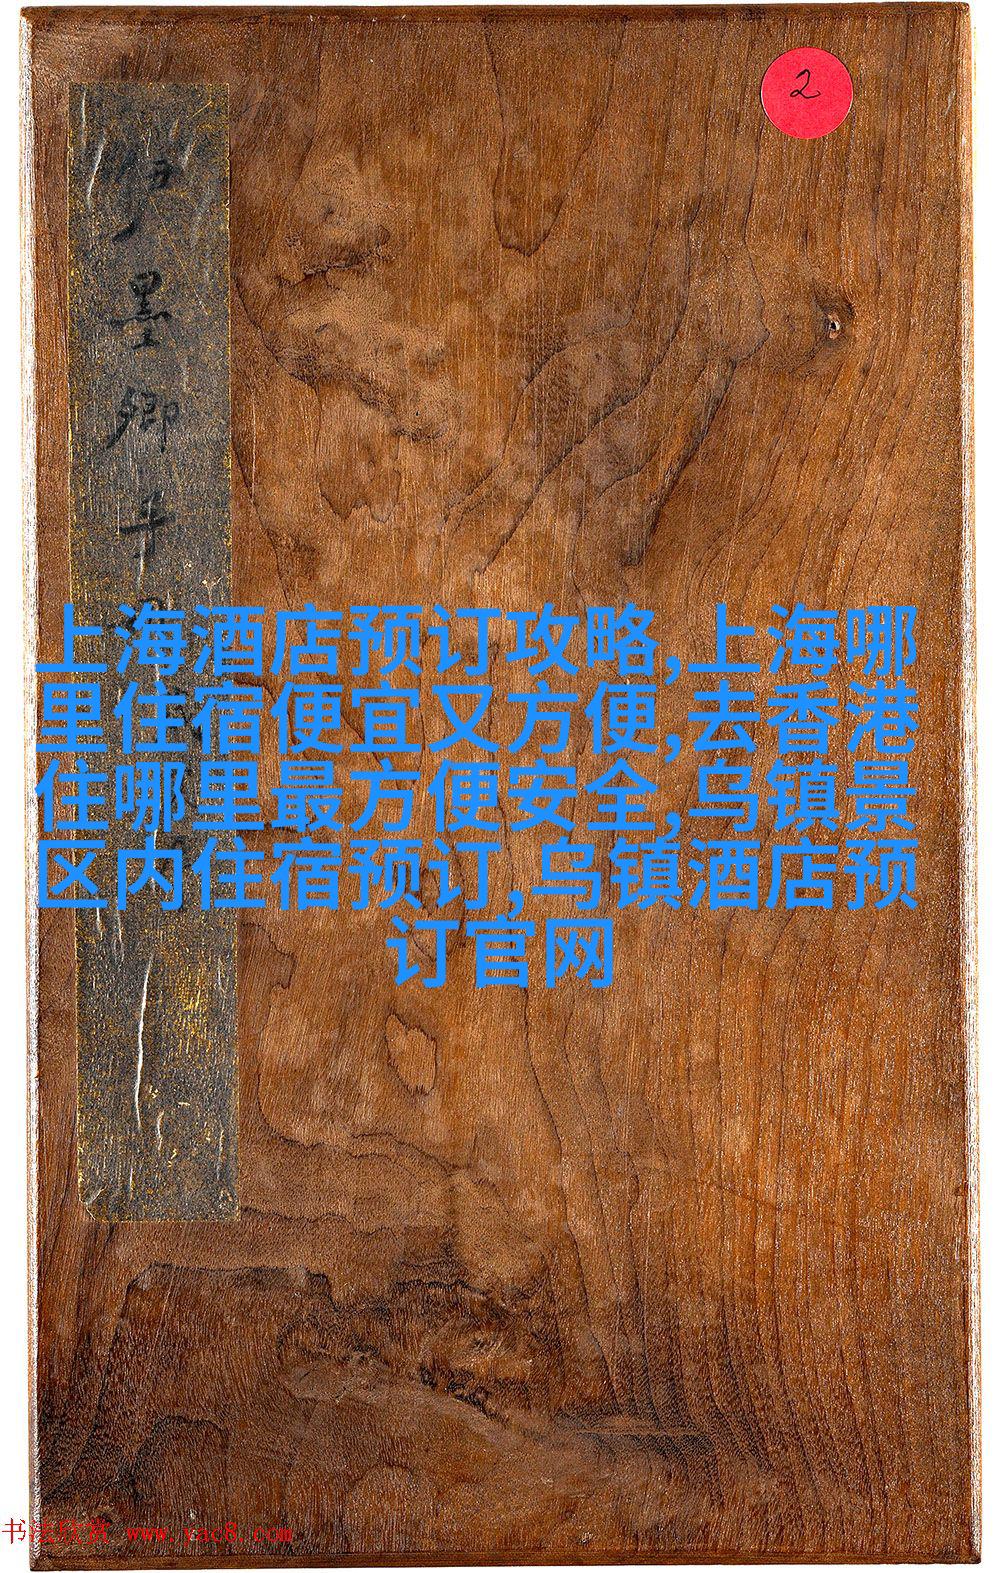 2
墨卿手
上海酒店预订攻略,上海哪
里住宿便宜又方便,去香港
住哪里最方便安全,乌镇景
区内住宿预订,乌镇酒店预
订官网
书法欣赏 www.yac8.com